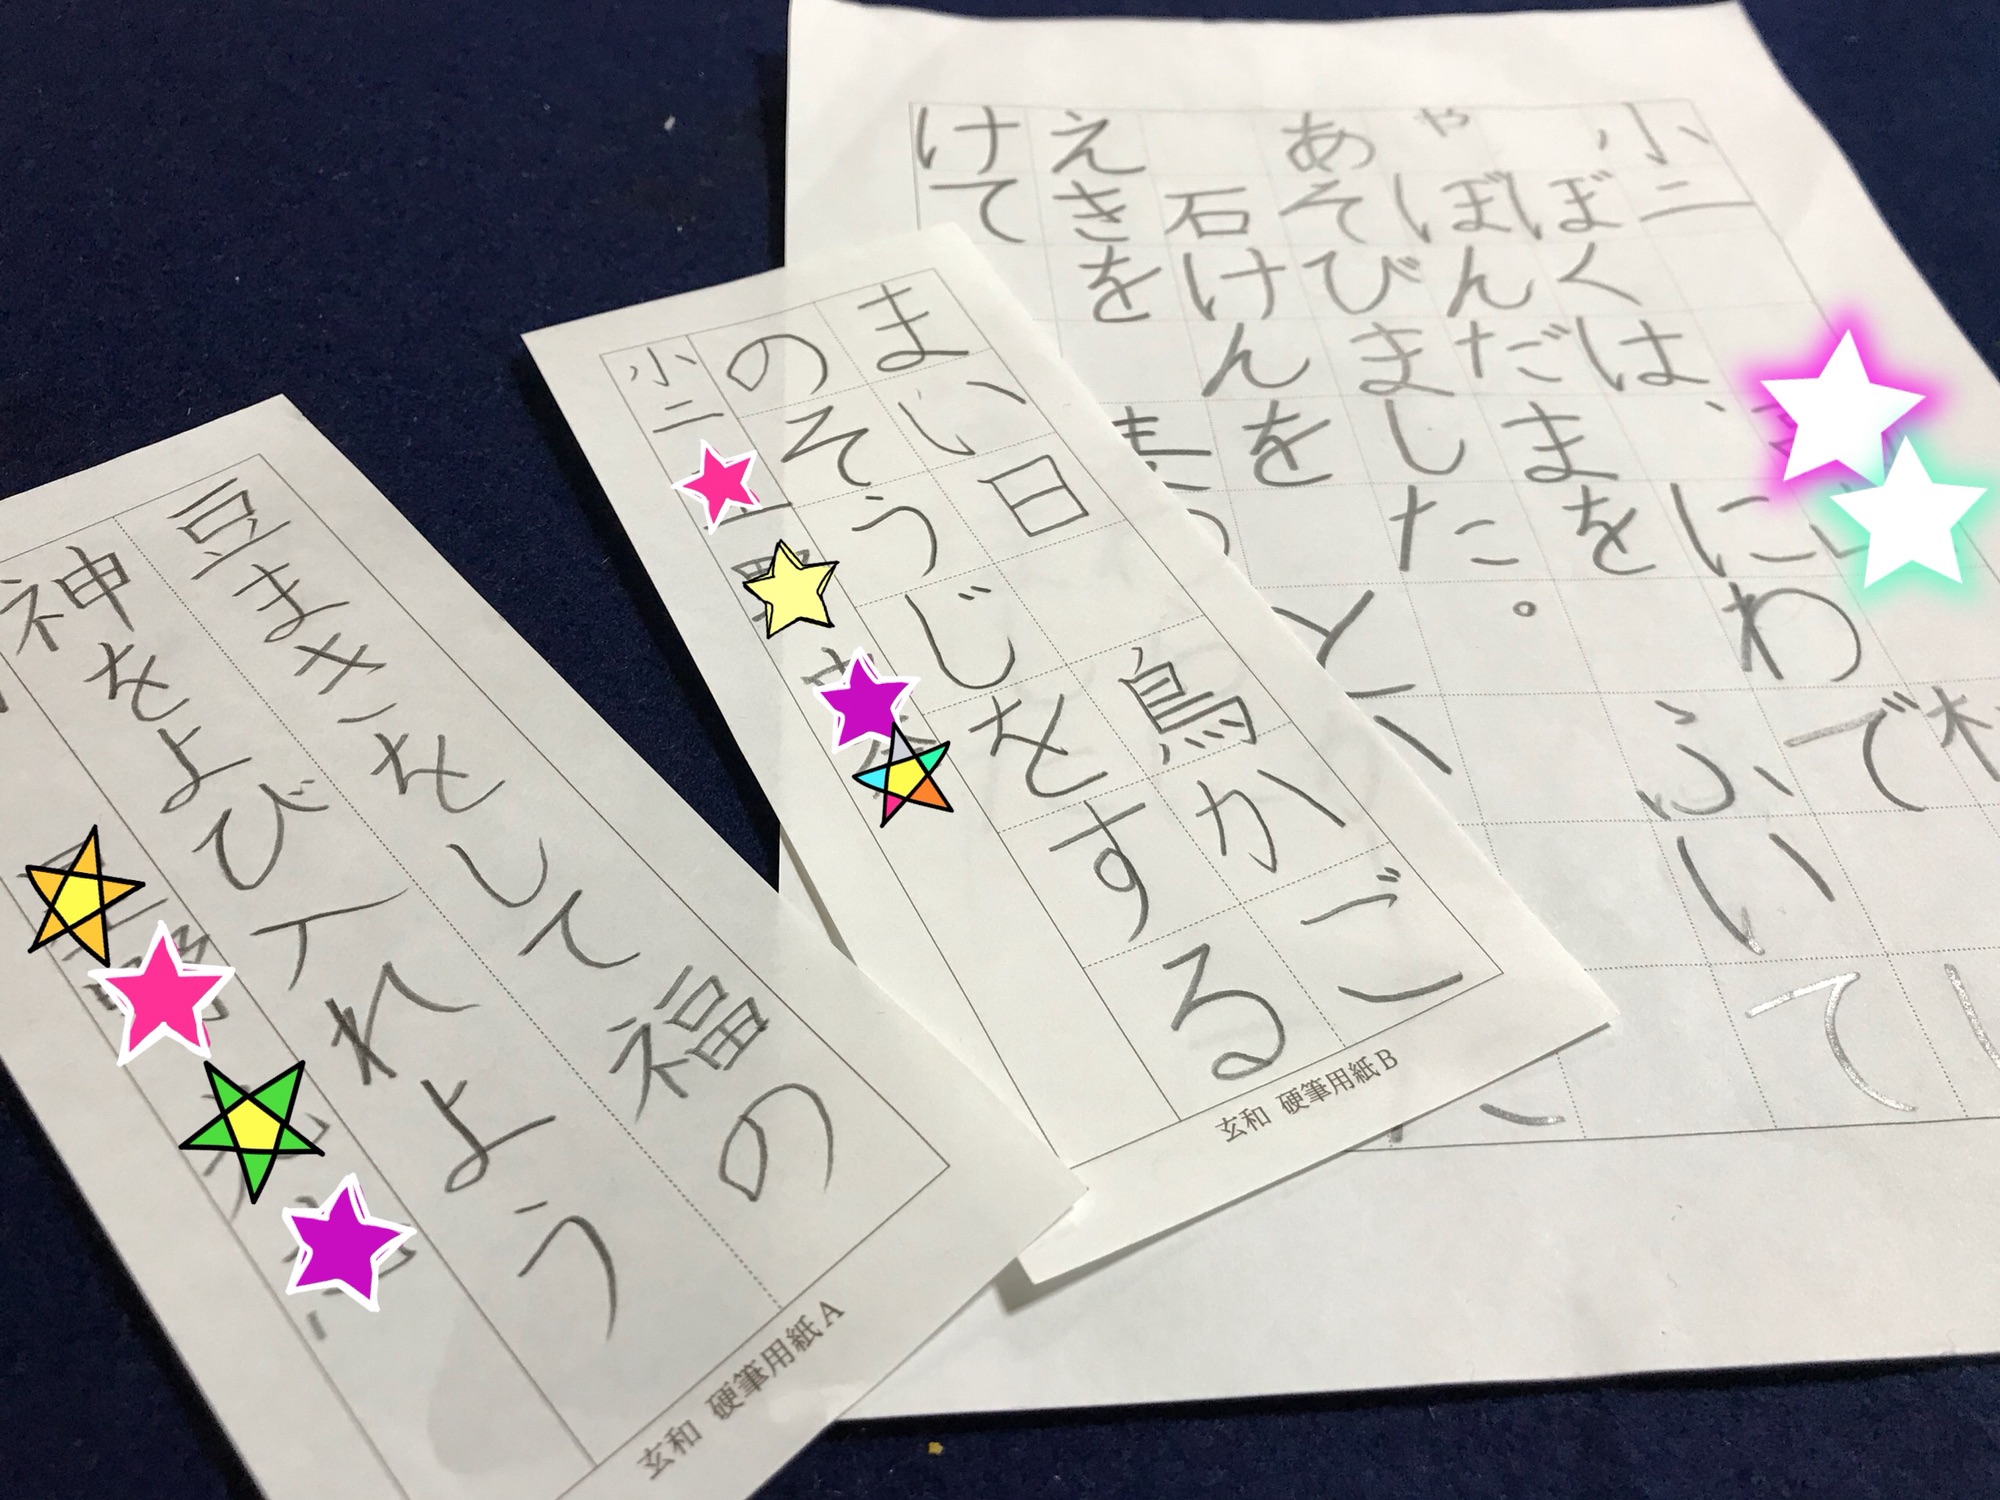 豆まきをして福の
神をよび入れよう
玄和 硬筆用紙A
まい日 鳥かご
のそうじをする
小二
玄和 硬筆用紙B
小二
ぼくは、にわで
ゃぼんだまを ふいて
あそびました。
石けんを
えきを
けて